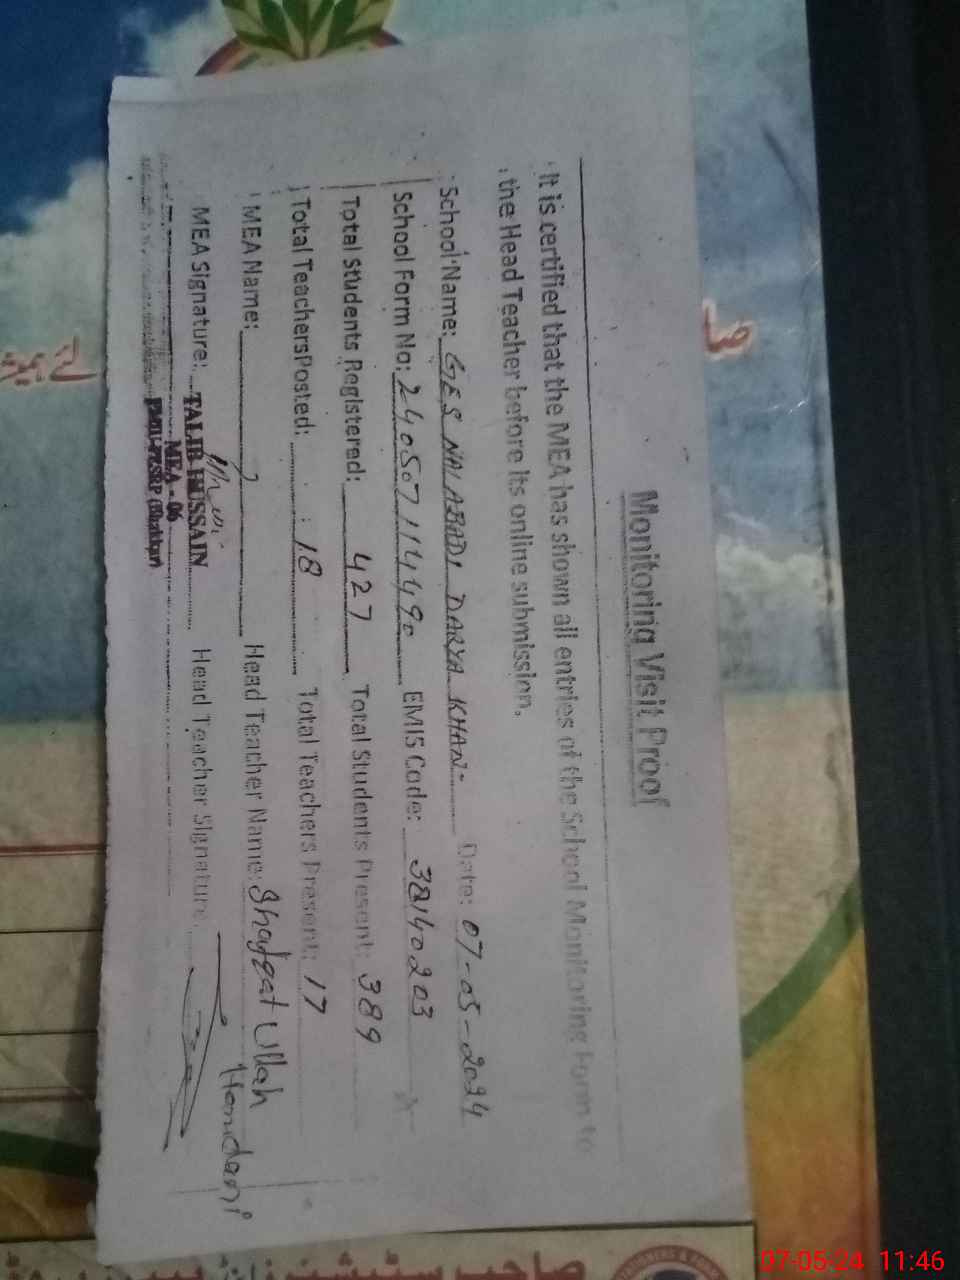 Monitoring Visit Proof
It is certified that the MEA has shown all entries of the School Monitoring Form to
the Head Teacher before its online submission.
School Name: GES NAI ABADI DARYA KHAN Date: 07-05-2024
School Form No: 240507114490 EMIS Code: 38140203
Total Students Registered: 427 Total Students Present: 389
Total Teachers Posted: 18 Total Teachers Present: 17
MEA Name: Head Teacher Name: Shafqat Ullah
Hamdani
MEA Signature: TALIB HUSSAIN Head Teacher Signature:
MEA - 06
(Bhakkar)
صا
07-05-24 11:46